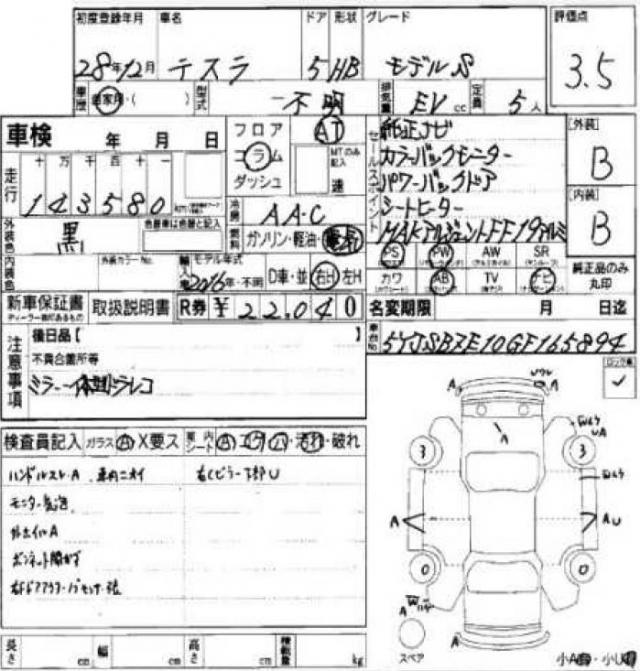 初度登録年月 車名 ドア 形状 グレード 評価点
28年12月 テスラ 5 HB モデルS 3.5
車歴 自家用・( ) 型式 不明 排気量 EV cc 定員 5人
車検 年 月 日 フロア AT セールスポイント 純正ナビ [外装]
走行 十 万 千 百 十 一 コラム MTのみ記入 カラーバックモニター B
143580 ダッシュ 速 パワーバックドア
冷房 AAC シートヒーター [内装]
外装色 黒 色替車は色替と記入 燃料 ガソリン・軽油・電気 19アルミ B
内装色 外装カラーNo. 輸入車 モデル年式 2016年・不明 D車・並 右H 左H PS PW AW SR
カワ AB TV ナビ 純正品のみ丸印
新車保証書 取扱説明書 R券 ¥22,040 名変期限 月 日迄
ディーラー印のあるもの
車台No. 5YJSB7E10GF165894
注意事項 後日品【 】
不具合箇所等
ミラー一体型ドラレコ
ロック有
検査員記入 ガラス A X要ス 車内シート A コゲ 汚れ・破れ
ハンドルスレA 車内ニオイ 右Cピラー下部U
モニター気泡
ホイルA
ボンネット開かず
A
A
A
3 3
A A U
0 0
A
A
スペア
長さ cm 幅 cm 高さ cm 積載量 kg
小A